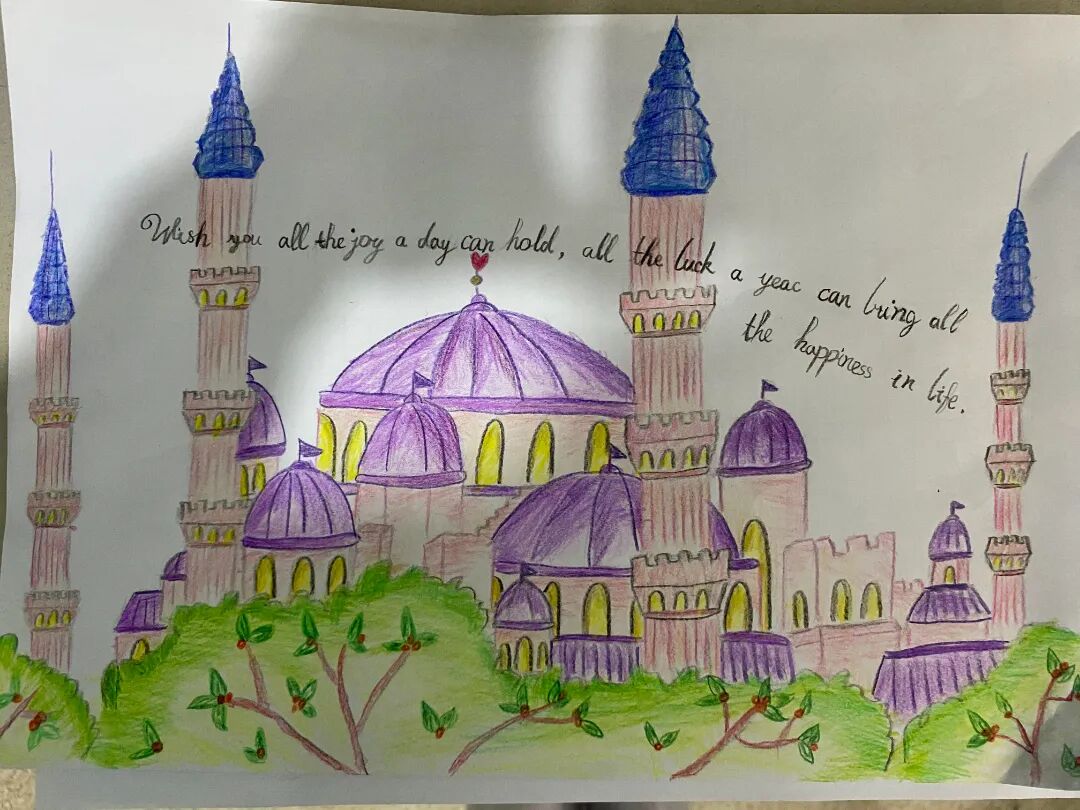 Wish you all the joy a day can hold, all the luck a year can bring all
the happiness in life.